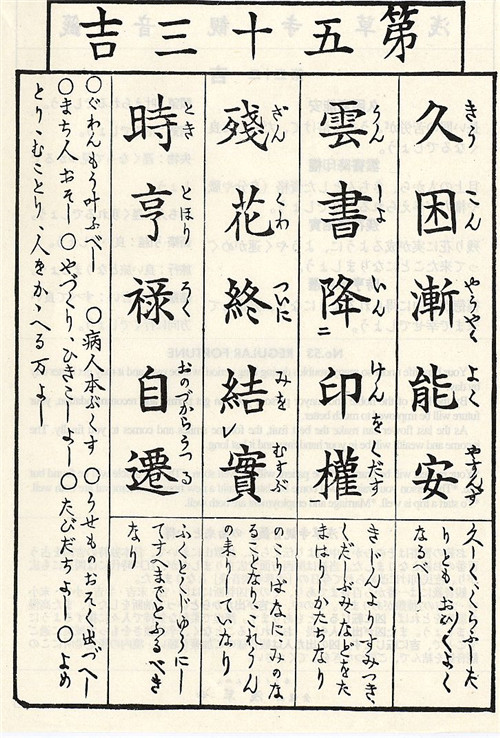 第五十三吉
久困漸能安
きうこんやうやくよくやすんず
雲書降二印權
うんしよいんけんをくだす
殘花終結レ實
ざんくわついにみをむすぶ
時亨祿自遷
ときとほりろくおのづからうつる
久しくくらふしたりともおひ〳〵よくなるべし
きいんよりすみつきくだしふみなどをたまはりしかたちなり
のこりばなにみのなるこゝろなればこれうんの来りていなり
ふしとくゆたかにしてすへまでとふるべきなり
〇ぐわんもう叶ふべし 〇病人本ぶくす 〇うせものおそく出づべし
〇まち人おそし〇やづくりひきこしよし〇たびだちよし〇よめとりむことり人をかゝへる万よし